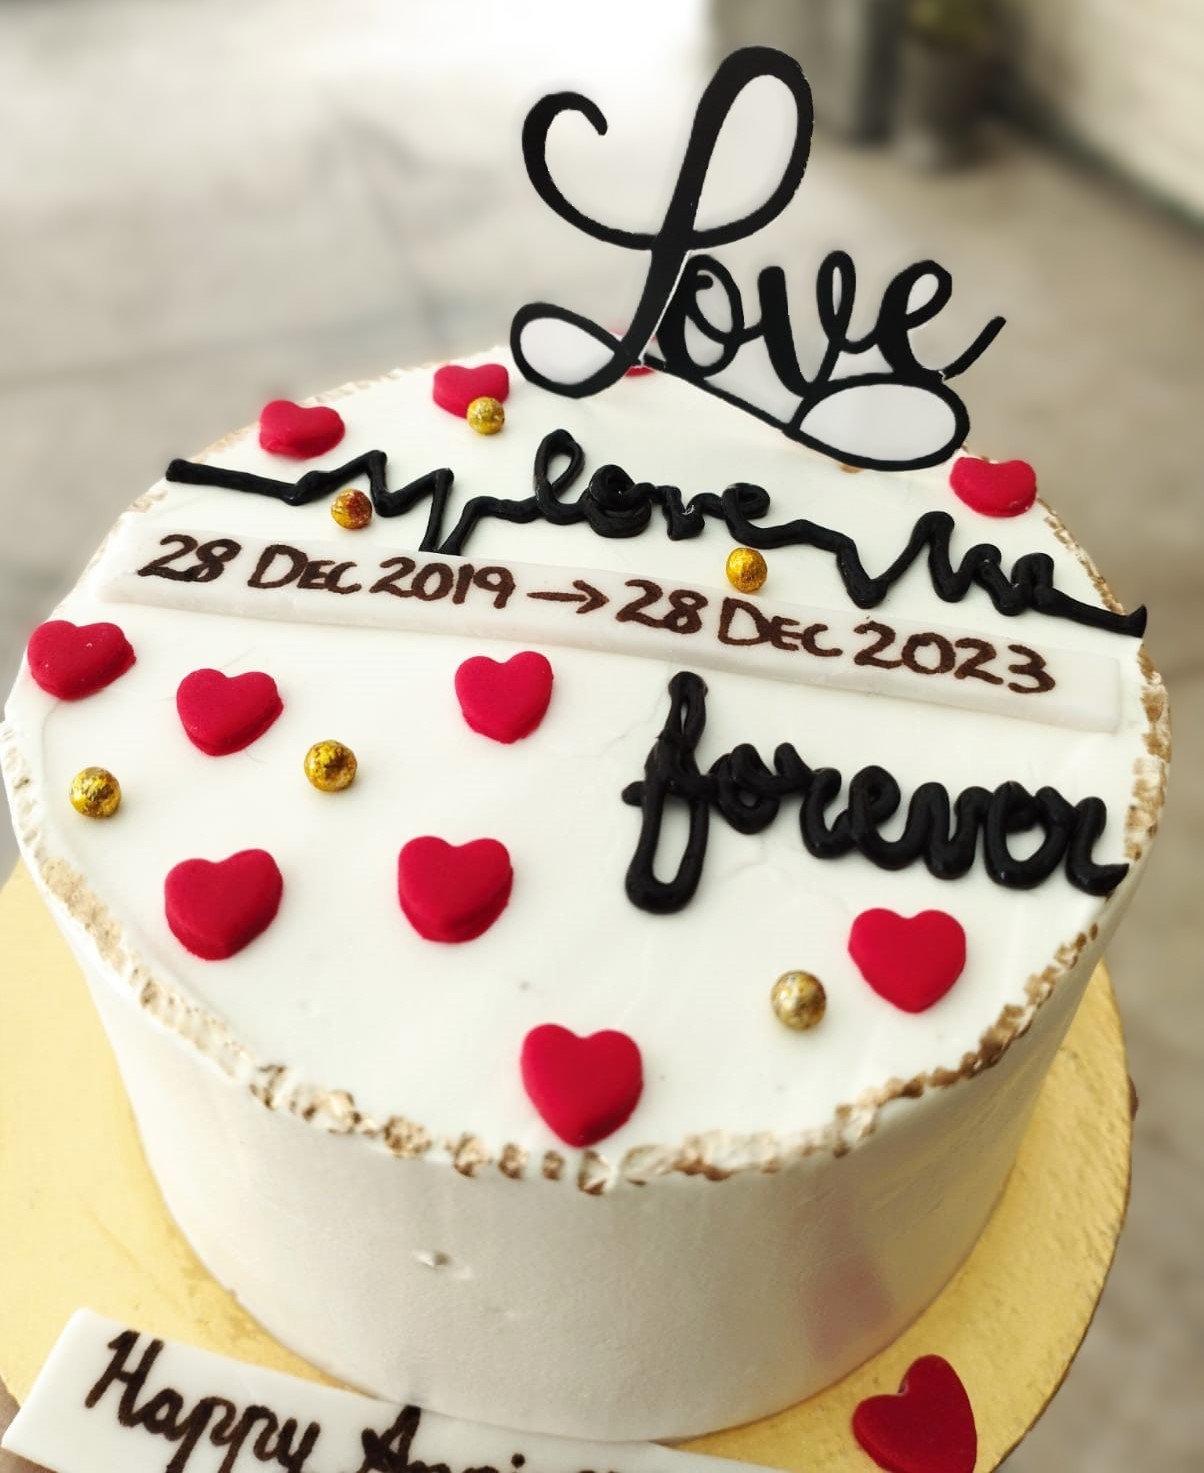 Love
love
28 DEC 2019 → 28 DEC 2023
forever
Happy